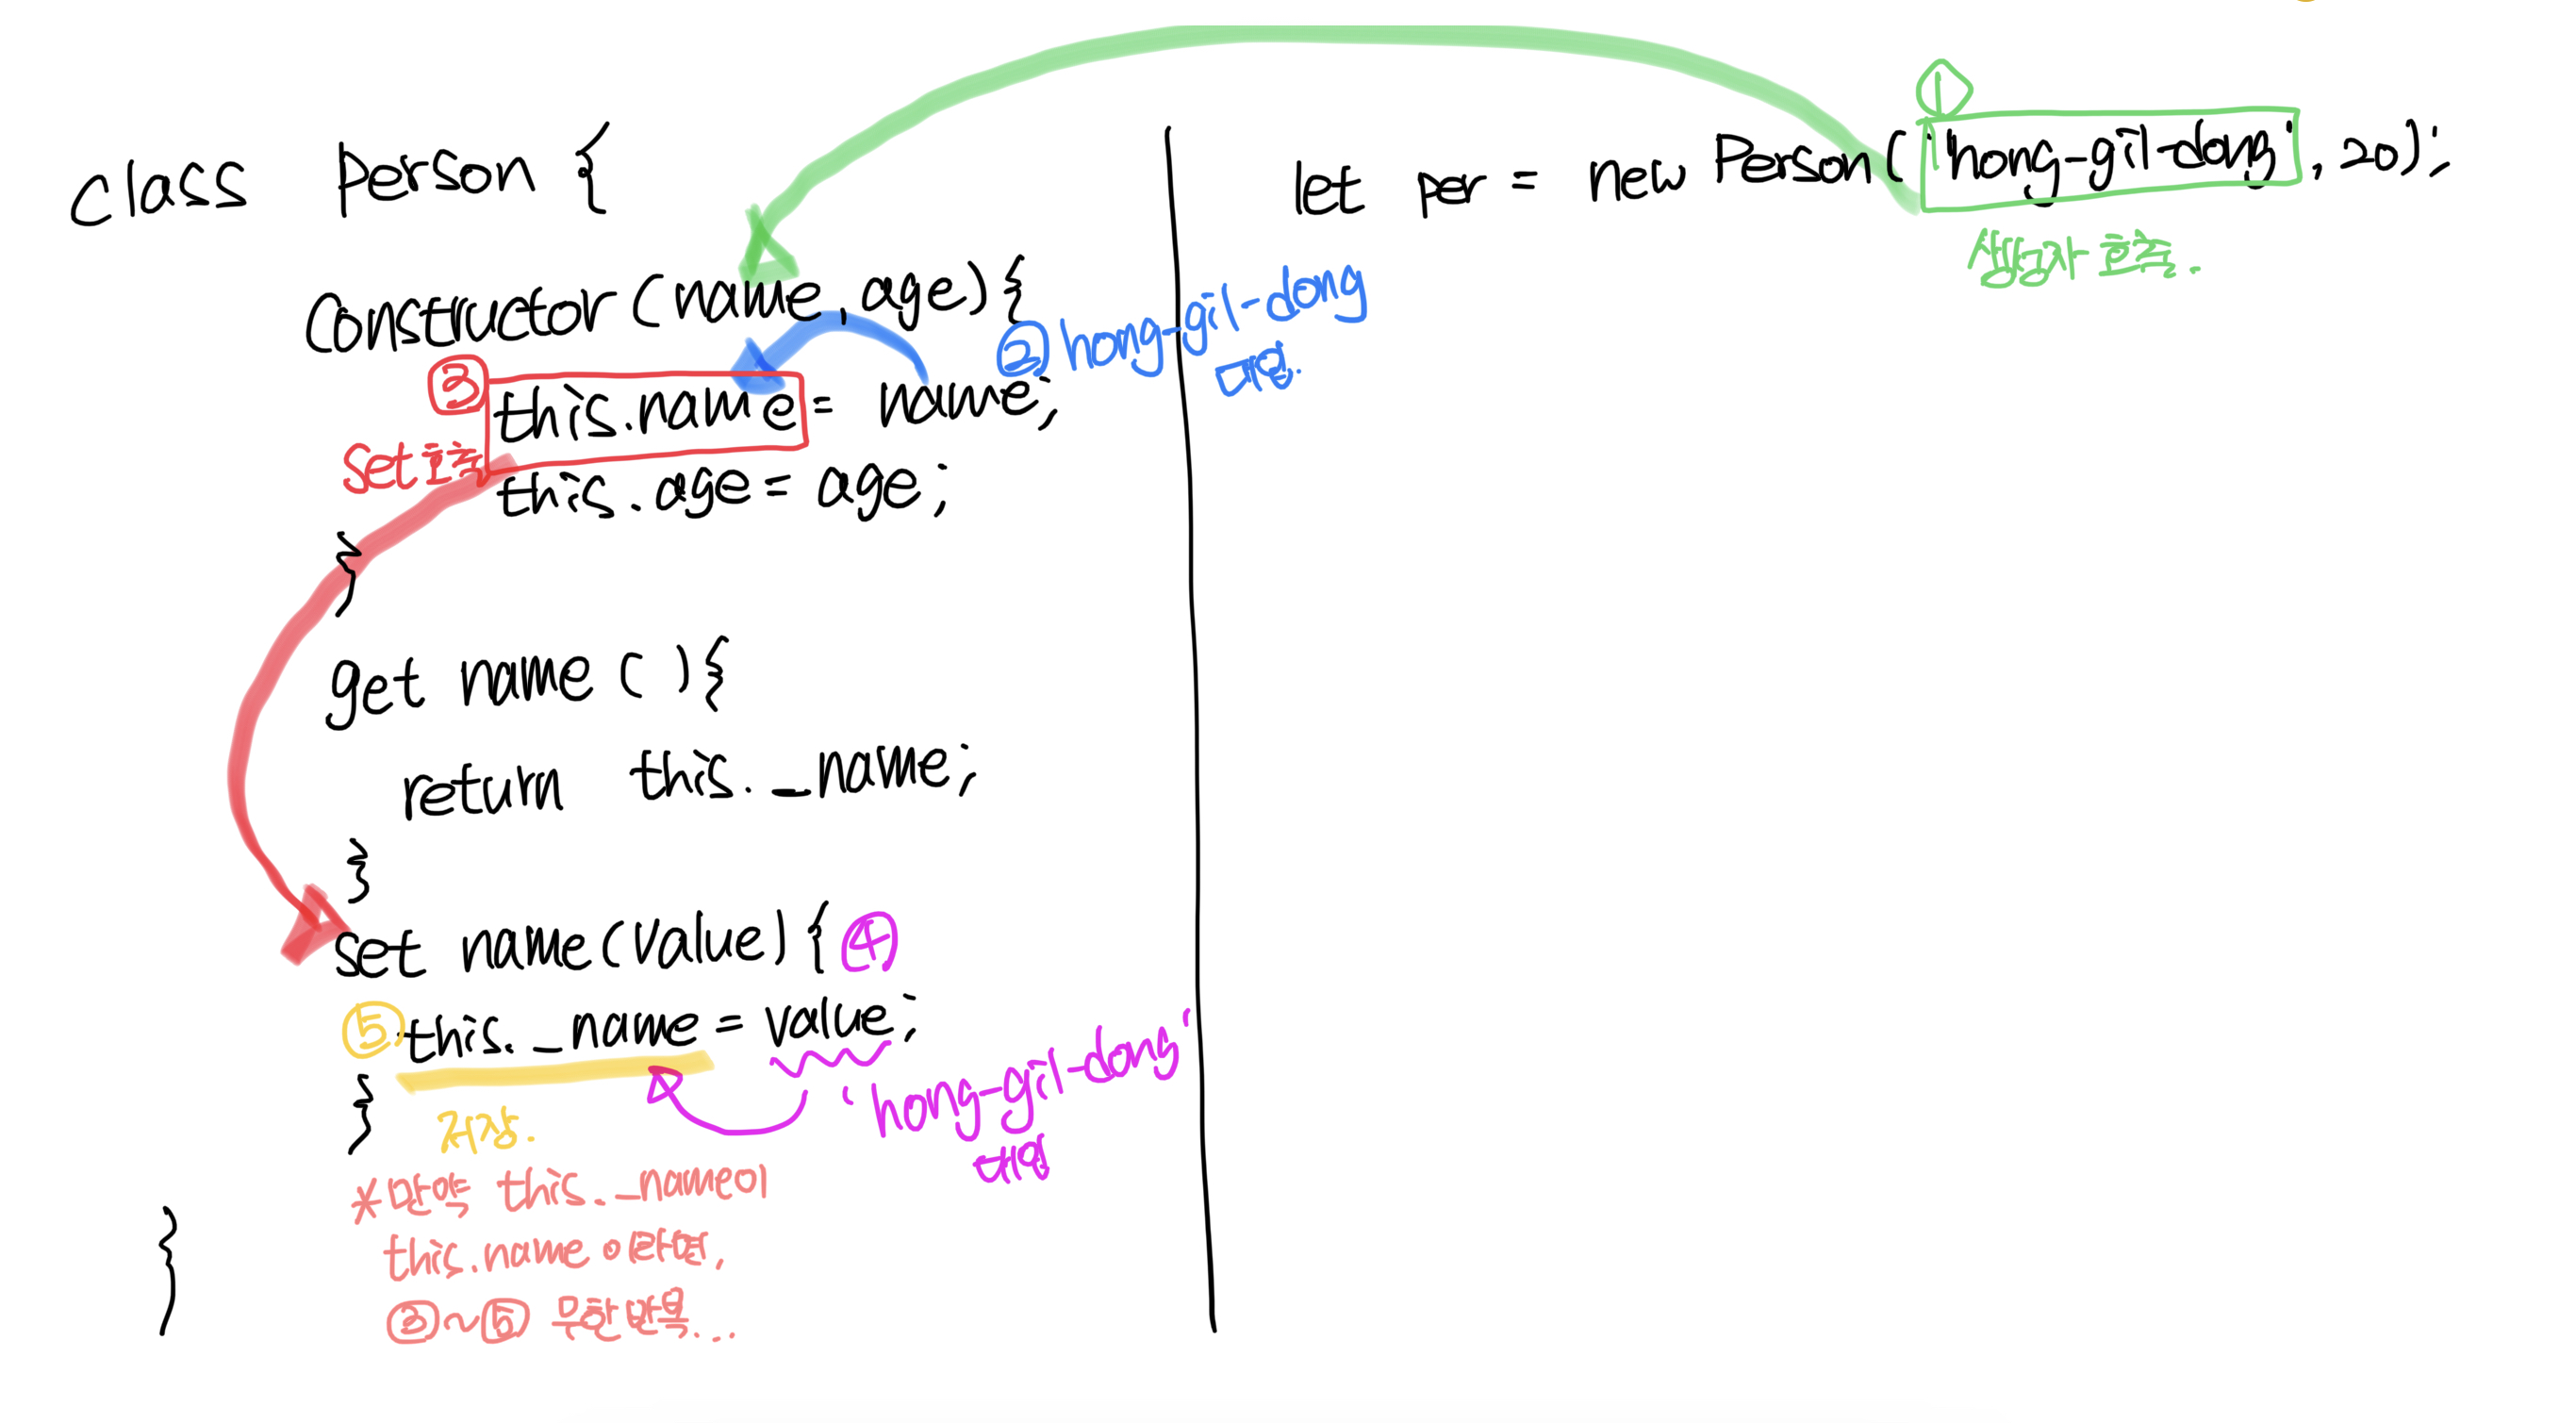 class Person {
constructor (name, age) {
③ this.name = name;
② hong-gil-dong
대입.
set 호출
this.age = age;
}
get name ( ) {
return this._name;
}
set name (value) { ④
⑤ this._name = value;
'hong-gil-dong'
대입
}
저장.
*만약 this._name이
this.name 이라면,
③~⑤ 무한 반복...
}
①
let per = new Person( 'hong-gil-dong' , 20);
생성자 호출.